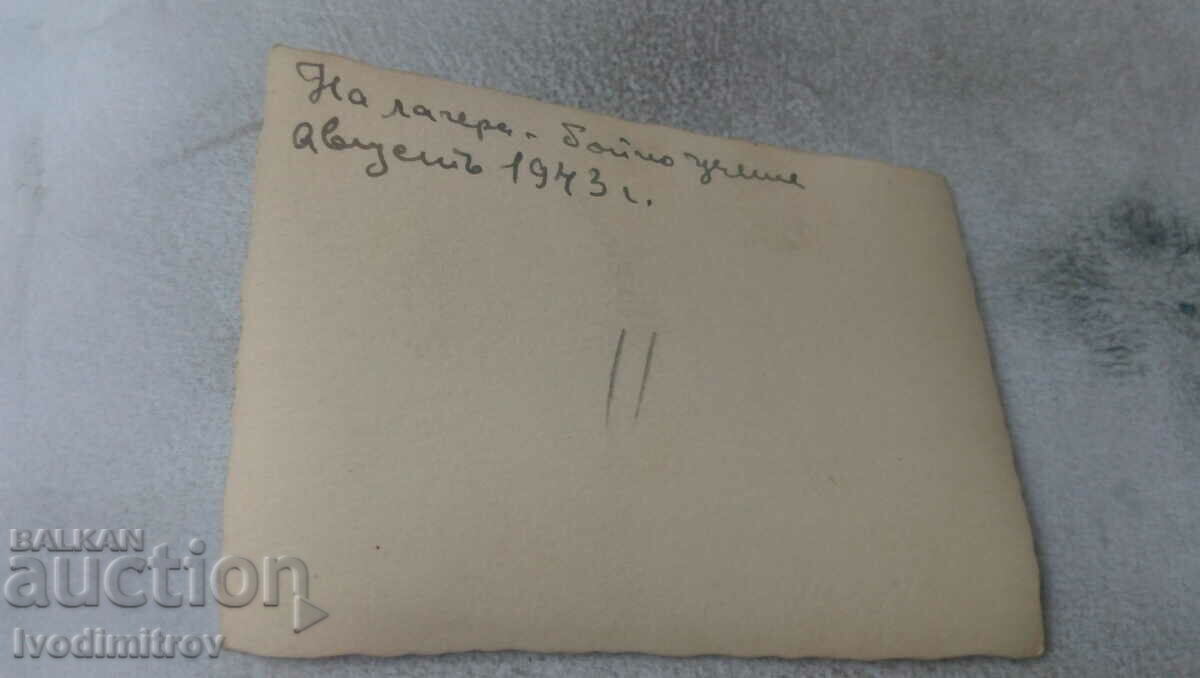 На лагера - бойно учение
Августъ 1943 г.
11
BALKAN
auction
Ivodimitrov